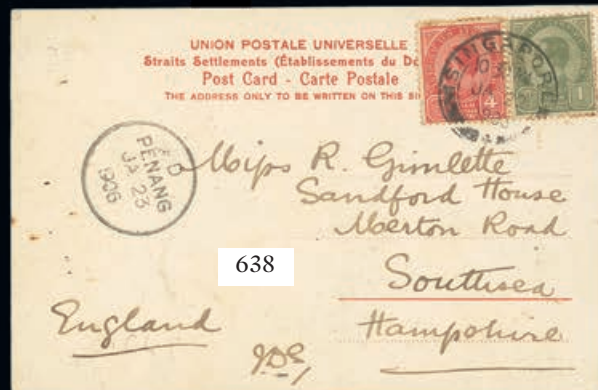 UNION POSTALE UNIVERSELLE
Straits Settlements (Établissements du Dé
Post Card - Carte Postale
THE ADDRESS ONLY TO BE WRITTEN ON THIS SI
SINGAPORE
JA
4
1
D
PENANG
JA 23
1906
Miss R. Gimlette
Sandford House
Merton Road
638
Southsea
England
Hampshire